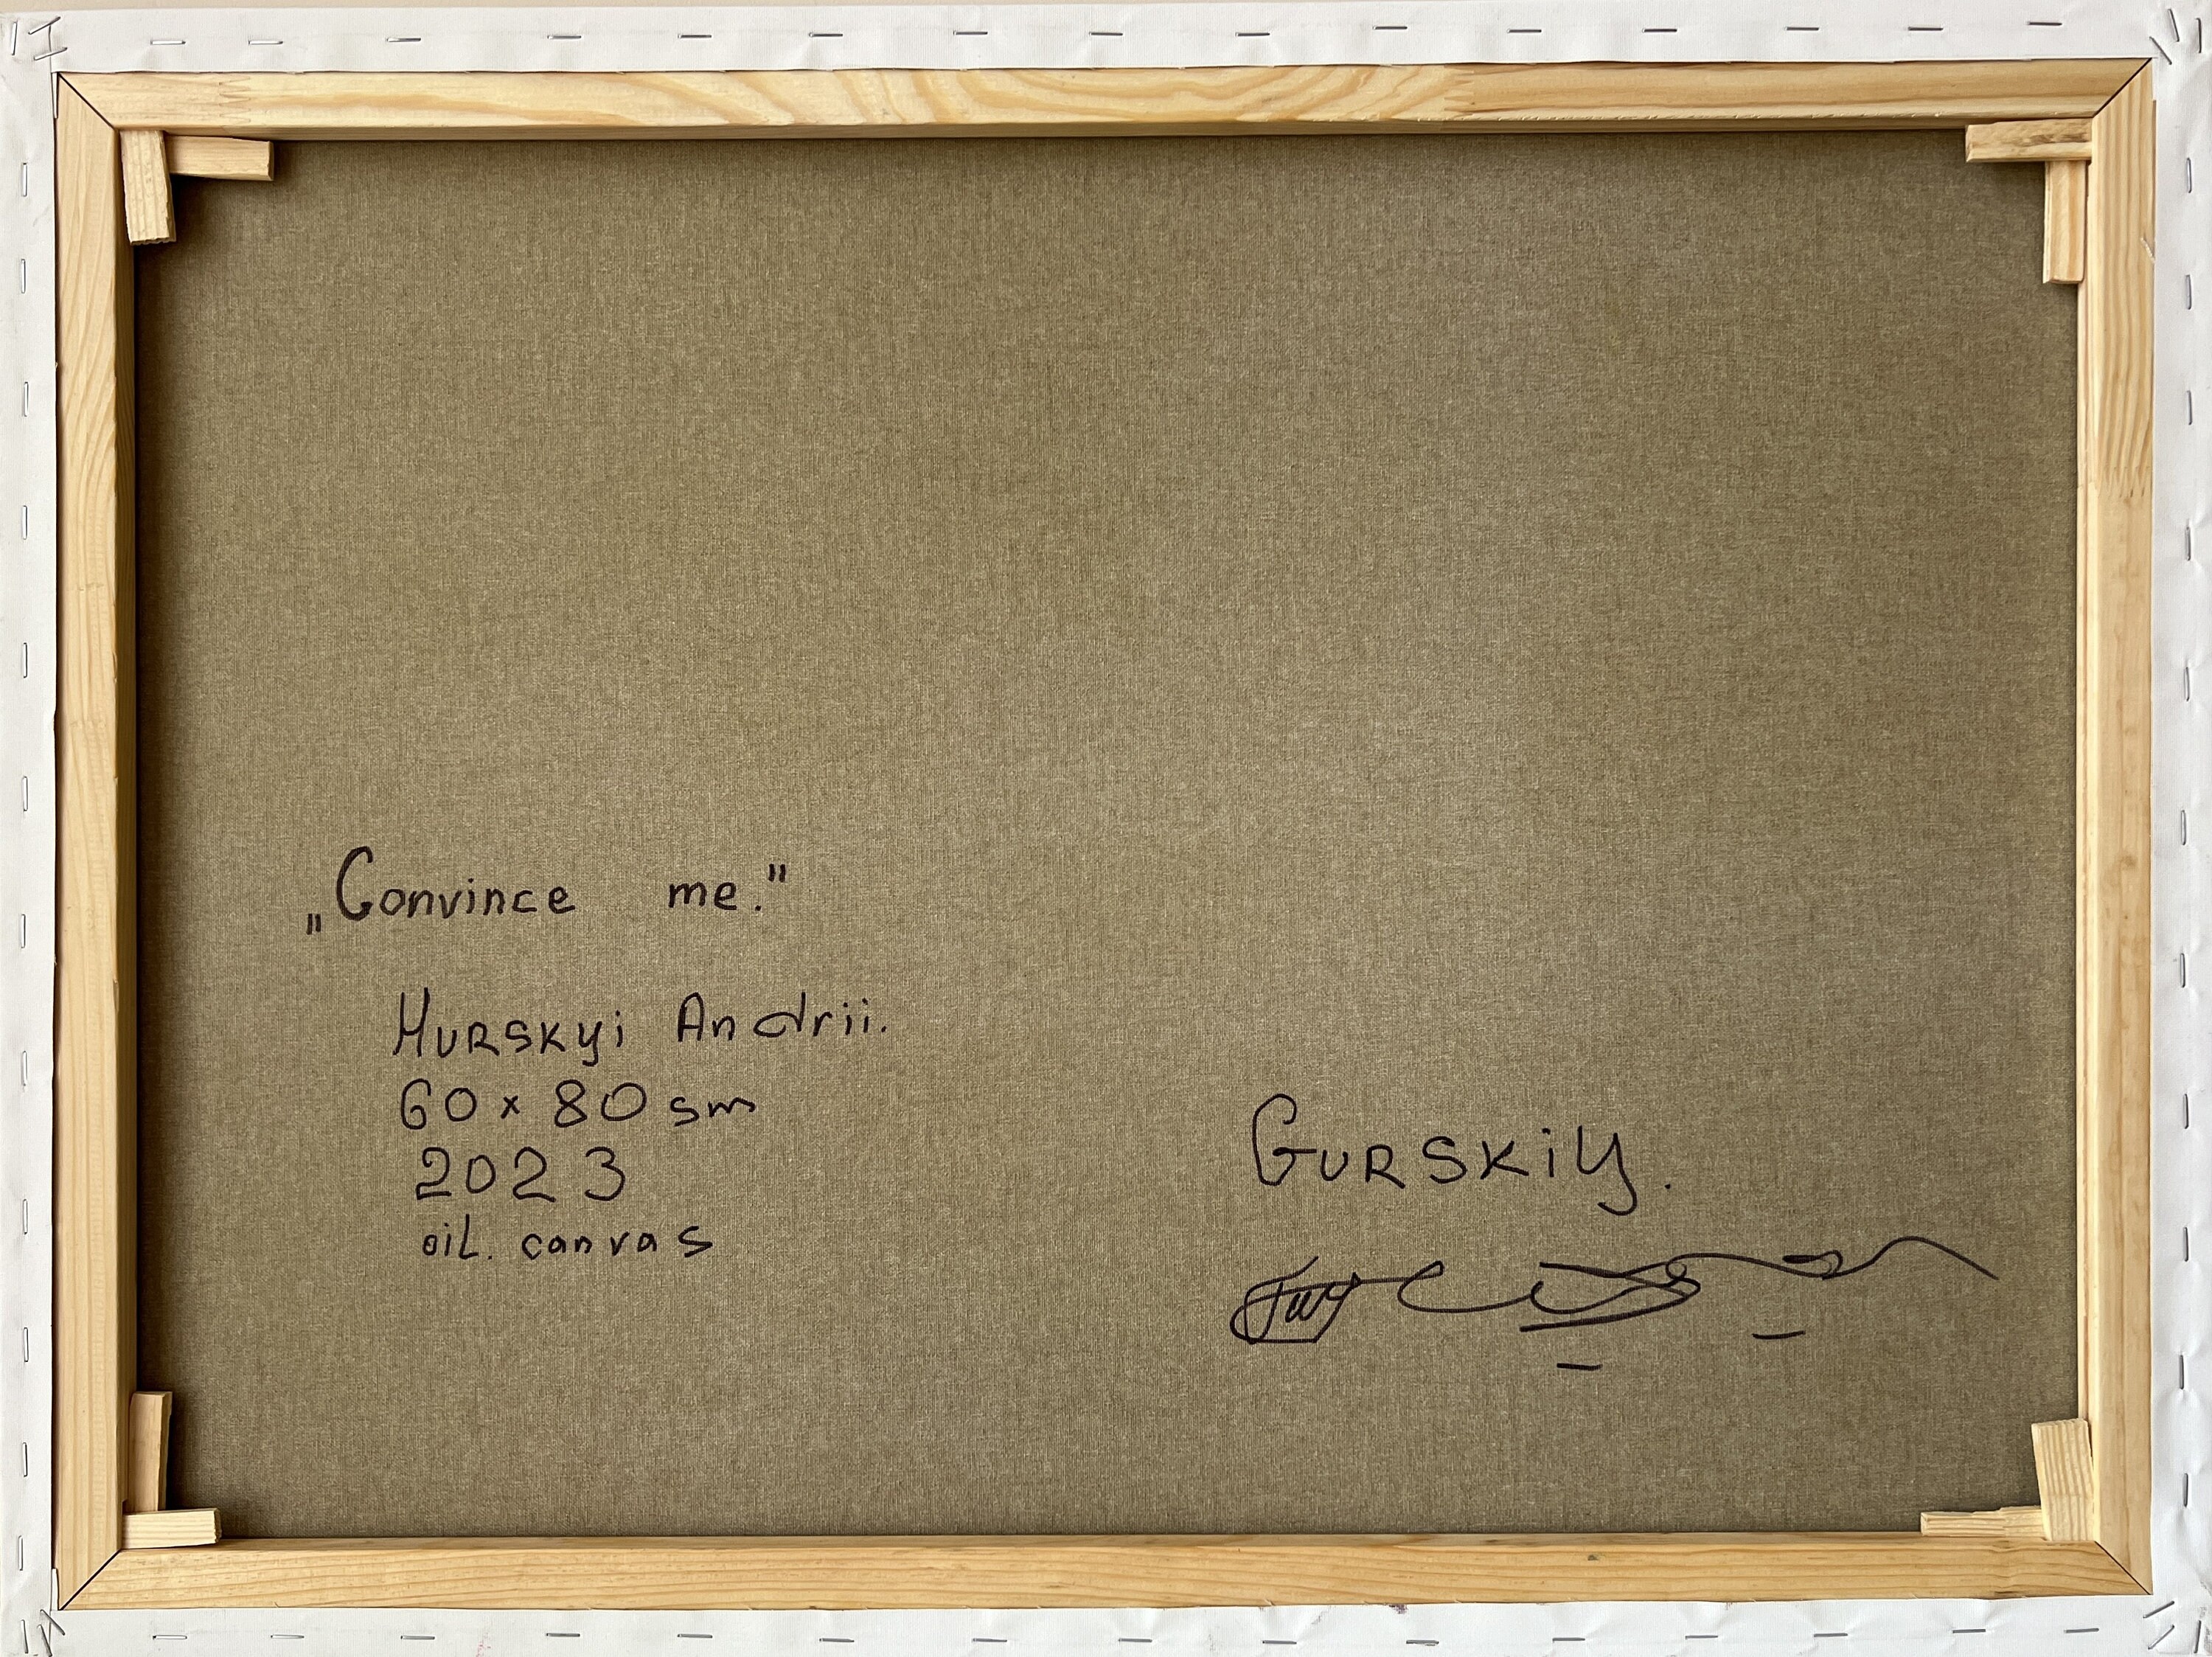 „Convince me."
Hurskyi Andrii.
60 x 80 sm
2023
oil. canvas
Gurskiy.